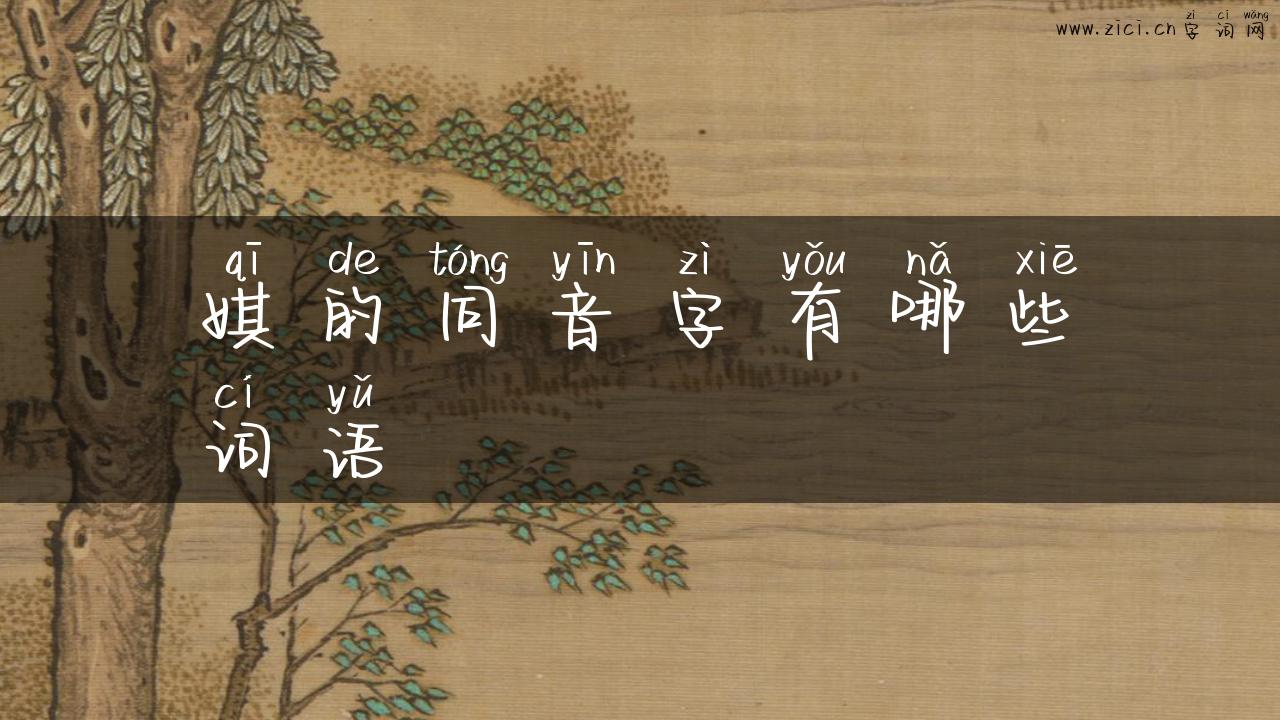 zì cí wǎng
www.zici.cn 字词网
qī de tóng yīn zì yǒu nǎ xiē
娸的同音字有哪些
cí yǔ
词语